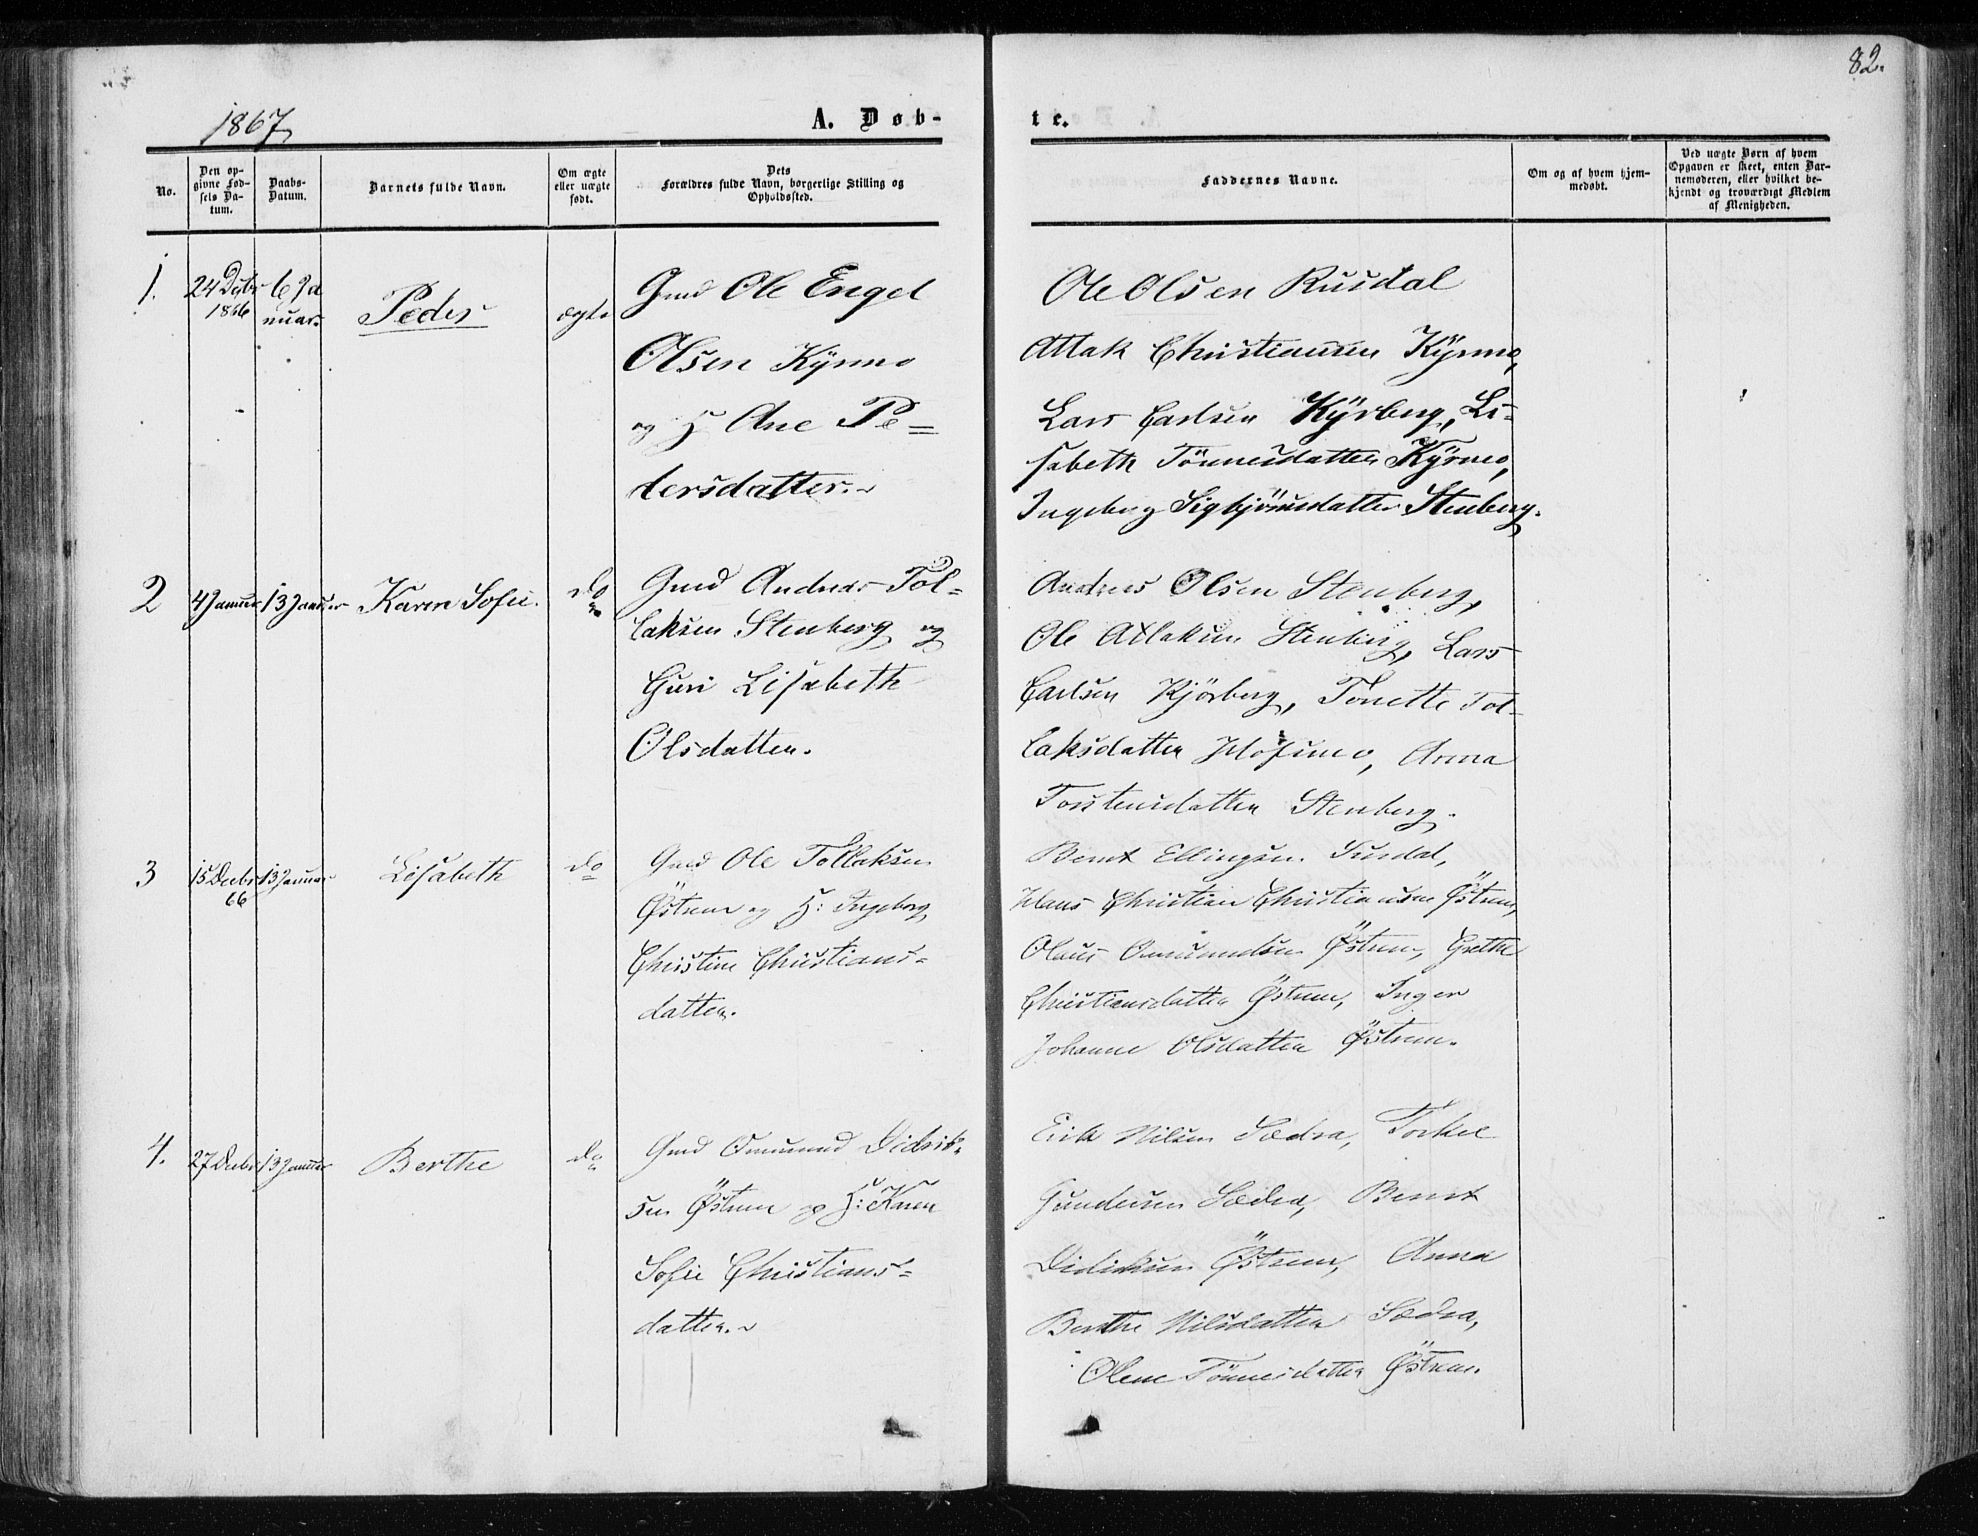 82.
1867
A. Døb-
te.
No.
Den op-
givne Fød-
sels Da-
tum.
Daabs-
Datum.
Barnets fulde Navn.
Om ægte
eller uægte
født.
Dets
Forældres fulde Navn, borgerlige Stilling og
Opholdssted.
Faddernes Navne.
Om og af hvem hjem-
medøbt.
Ved uægte Børn af hvem
Opgaven er skeet, enten Bar-
nemoderen, eller hvilket be-
kjendt og troværdigt Medlem
af Menigheden.
1.
24 Decbr
1866
6 Ja
nuar
Peder
ægte
Gmd Ole Engel
Olsen Kÿrmo
og H Ane Pe=
dersdatter.
Ole Olsen Rusdal
Atlak Christiansen Kÿrmo,
Lars Carlsen Kÿrberg, Li-
sabeth Tönnesdatter Kÿrmo,
Ingeborg Sigbjörnsdatter Stenberg.
2
4 Januar
13 Januar
Karen Sofie.
do
Gmd Andreas Tol=
laksen Stenberg og
Guri Lisabeth
Olsdatter.
Andreas Olsen Stenberg,
Ole Atlaksen Stenberg, Lars
Carlsen Kjörberg, Tonette Tol-
laksdatter Mosimo, Anna
Torstensdatter Stenberg.
3
15 Decbr
66
13 Januar
Lisabeth
do
Gmd Ole Tollaksen
Østrem og H: Ingeborg
Christine Christians=
datter.
Bernt Ellingsen Susdal,
Hans Christian Christiansen Østrem,
Olaus Omundsen Østrem, Grethe
Christiansdatter Østrem, Inger
Johanne Olsdatter Østrem.
4.
27 Decbr
13 Januar
Berthe
do
Gmd Ommund Didrik=
sen Østrem og H: Karen
Sofie Christians=
datter.
Erik Nilsen Sædra, Torkel
Gundersen Sædra, Bernt
Didriksen Østrem, Anna
Berthe Nilsdatter Sædra,
Olene Tönnesdatter Østrem.